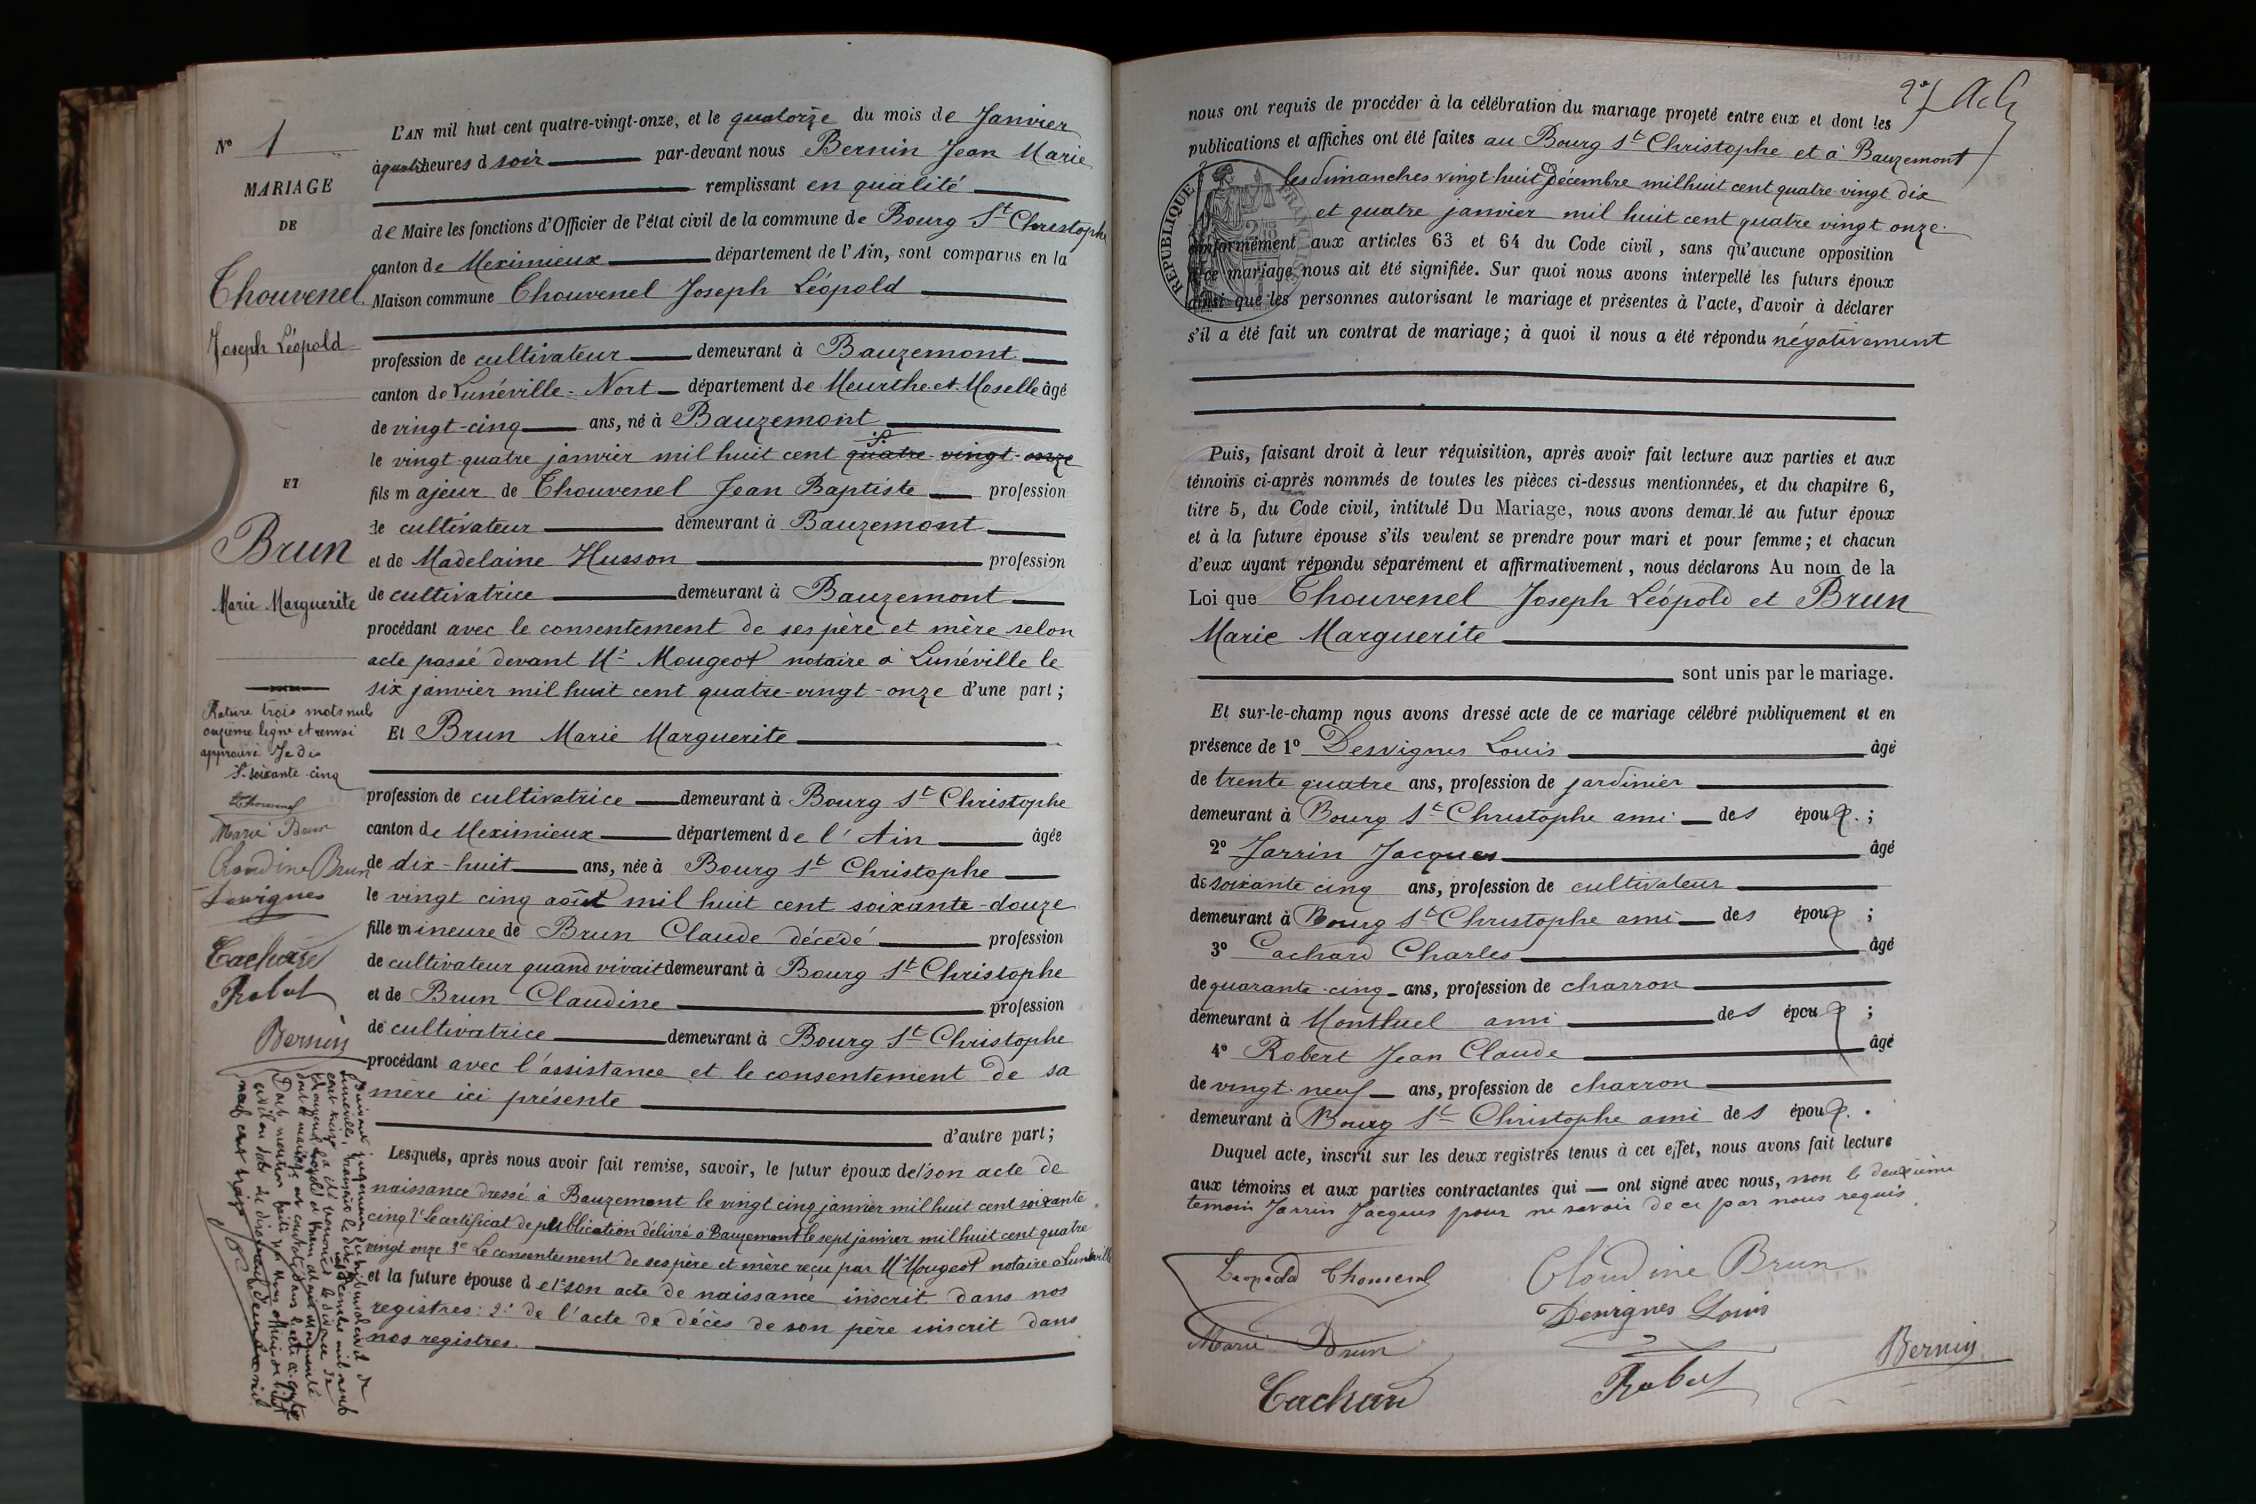 N° 1
MARIAGE
DE
Thouvenel
Joseph Léopold
ET
Brun
Marie Marguerite
Rature trois mots nuls
onzième ligne et renvoi
approuvé Je dis
S. soixante-cinq
Marie Brun
Claudine Brun
Desvignes
Cachard
Robert
Bernin
L'AN mil huit cent quatre-vingt-onze, et le quatorze du mois de Janvier
à quatre heures d soir par-devant nous Bernin Jean Marie
remplissant en qualité
de Maire les fonctions d'Officier de l'état civil de la commune de Bourg St Christophe
canton de Meximieux département de l'Ain, sont comparus en la
Maison commune Thouvenel Joseph Léopold
profession de cultivateur demeurant à Bauzemont
canton de Lunéville-Nort département de Meurthe-et-Moselle âgé
de vingt-cinq ans, né à Bauzemont
le vingt-quatre janvier mil huit cent quatre-vingt-onze
fils majeur de Thouvenel Jean Baptiste profession
de cultivateur demeurant à Bauzemont
et de Madelaine Husson profession
de cultivatrice demeurant à Bauzemont
procédant avec le consentement de ses père et mère selon
acte passé devant Me Mougeot notaire à Lunéville le
six janvier mil huit cent quatre-vingt-onze d'une part ;
Et Brun Marie Marguerite
profession de cultivatrice demeurant à Bourg St Christophe
canton de Meximieux département de l'Ain âgée
de dix-huit ans, née à Bourg St Christophe
le vingt cinq août mil huit cent soixante-douze
fille mineure de Brun Claude décédé profession
de cultivateur quand vivait demeurant à Bourg St Christophe
et de Brun Claudine profession
de cultivatrice demeurant à Bourg St Christophe
procédant avec l'assistance et le consentement de sa
mère ici présente
d'autre part ;
Lesquels, après nous avoir fait remise, savoir, le futur époux de 1° son acte de
naissance dressé à Bauzemont le vingt cinq janvier mil huit cent soixante
cinq 2° le certificat de publication délivré à Bauzemont le sept janvier mil huit cent quatre
vingt onze 3° Le consentement de ses père et mère reçu par Me Mougeot notaire à Lunéville
et la future épouse d e 1° son acte de naissance inscrit dans nos
registres : 2° de l'acte de décès de son père inscrit dans
nos registres.
nous ont requis de procéder à la célébration du mariage projeté entre eux et dont les
publications et affiches ont été faites au Bourg St Christophe et à Bauzemont
les dimanches vingt-huit Décembre mil huit cent quatre-vingt dix
et quatre janvier mil huit cent quatre vingt onze
conformément aux articles 63 et 64 du Code civil, sans qu'aucune opposition
à ce mariage nous ait été signifiée. Sur quoi nous avons interpellé les futurs époux
ainsi que les personnes autorisant le mariage et présentes à l'acte, d'avoir à déclarer
s'il a été fait un contrat de mariage ; à quoi il nous a été répondu négativement
REPUBLIQUE FRANÇAISE
Puis, faisant droit à leur réquisition, après avoir fait lecture aux parties et aux
témoins ci-après nommés de toutes les pièces ci-dessus mentionnées, et du chapitre 6,
titre 5, du Code civil, intitulé Du Mariage, nous avons demandé au futur époux
et à la future épouse s'ils veulent se prendre pour mari et pour femme ; et chacun
d'eux ayant répondu séparément et affirmativement, nous déclarons Au nom de la
Loi que Thouvenel Joseph Léopold et Brun
Marie Marguerite
sont unis par le mariage.
Et sur-le-champ nous avons dressé acte de ce mariage célébré publiquement et en
présence de 1° Desvignes Louis âgé
de trente quatre ans, profession de jardinier
demeurant à Bourg St Christophe ami des époux ;
2° Jarrin Jacques âgé
de soixante cinq ans, profession de cultivateur
demeurant à Bourg St Christophe ami des époux ;
3° Cachard Charles âgé
de quarante-cinq ans, profession de charron
demeurant à Montluel ami des époux ;
4° Robert Jean Claude âgé
de vingt-neuf ans, profession de charron
demeurant à Bourg St Christophe ami des époux.
Duquel acte, inscrit sur les deux registres tenus à cet effet, nous avons fait lecture
aux témoins et aux parties contractantes qui ont signé avec nous, non le deuxième
témoin Jarrin Jacques pour ne savoir de ce par nous requis
Léopold Thouvenel
Claudine Brun
Desvignes Louis
Marie Brun
Bernin
Cachard
Robert